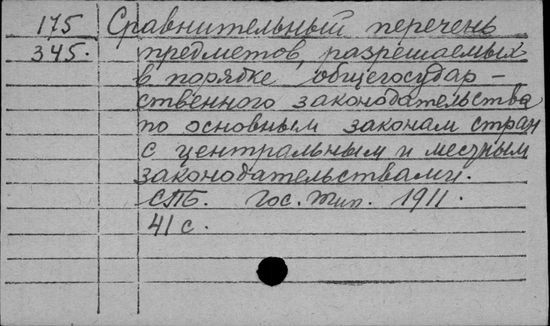 175 Сравнительный перечень
345. предметов, разрешаемых
в порядке общегосудар-
ственного законодательства
по основным законам стран
с центральным и местным
законодательствами.
СПБ. Гос. тип. 1911.
41 с.